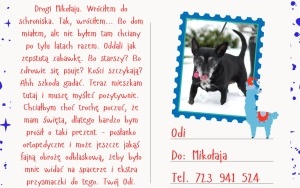 Drogi Mikołaju. Wróciłem do
schroniska. Tak, wróciłem... Bo dom
miałem, ale nie byłem tam chciany
po tylu latach razem. Oddali jak
zepsutą zabawkę. Bo starszy? Bo
zdrowie się psuje? Kości szczykają?
Ahh szkoda gadać. Teraz mieszkam
tutaj i muszę myśleć pozytywnie.
Chciałbym choć trochę poczuć, że
mam święta, dlatego bardzo bym
prosił o taki prezent - posłanko
ortopedyczne i może jeszcze jakąś
fajną obrożę odblaskową, żeby było
mnie widać na spacerze i ekstra
przysmaczki do tego. Twój Odi.
Odi
Do: Mikołaja
Tel. 723 941 524